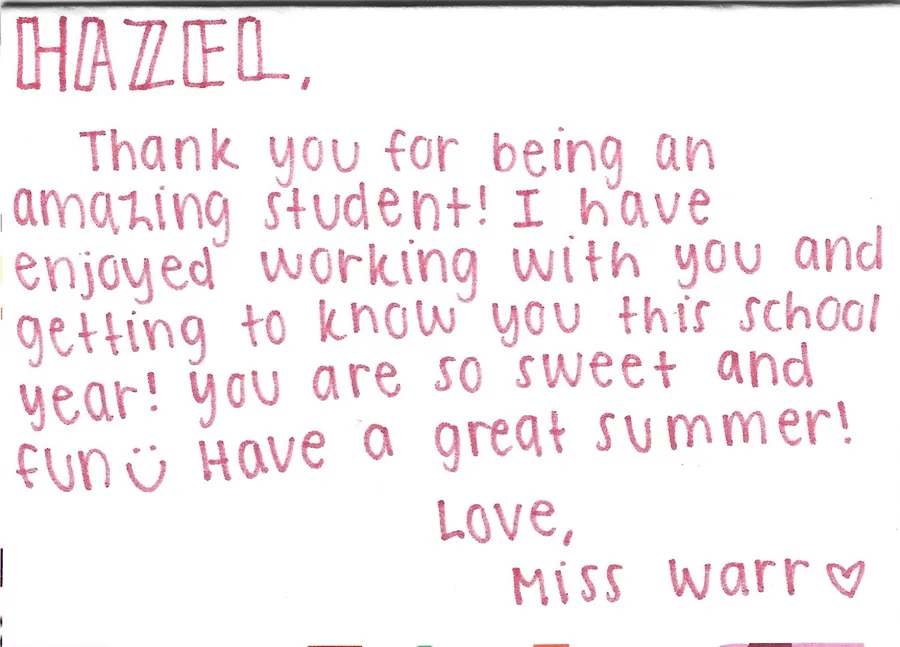 HAZEL,
Thank you for being an
amazing student! I have
enjoyed working with you and
getting to know you this school
year! you are so sweet and
fun Have a great summer!
Love,
Miss Warr